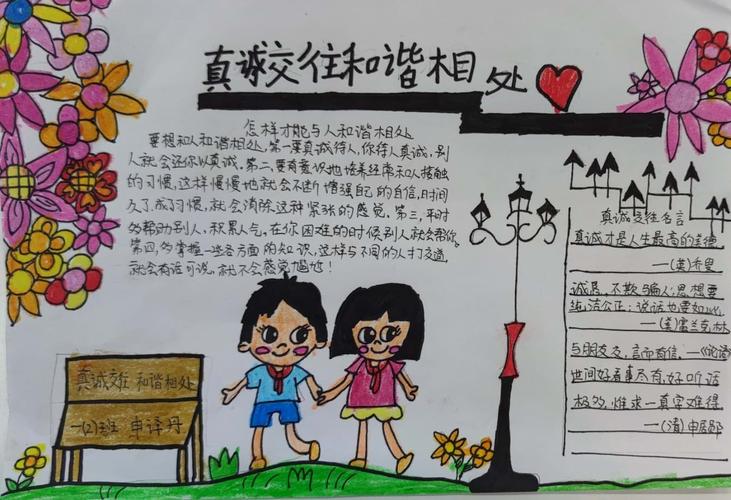 真诚交往和谐相处
怎样才能与人和谐相处
要想和人和谐相处,第一要真诚待人,你待人真诚,别
人就会还你以真诚。第二,要有意识地培养经常和人接触
的习惯,这样慢慢地就会不断增强自己的自信,时间
久了,成了习惯,就会消除这种紧张的感觉。第三,平时
多帮助别人,积累人气,在你困难的时候别人就会帮你。
第四,多掌握一些各方面的知识,这样与不同的人打交道,
就会有话可说,就不会感觉尴尬!
真诚交往名言
真诚才是人生最高的美德
——(英)乔叟
诚恳,不欺骗人;思想要
纯洁公正;说话也要如此
——(美)富兰克林
与朋友交,言而有信。——《论语》
世间好看事尽有,好听话
极多,惟求一真字难得
——(清)申居郧
真诚交往 和谐相处
一(2)班 申译丹